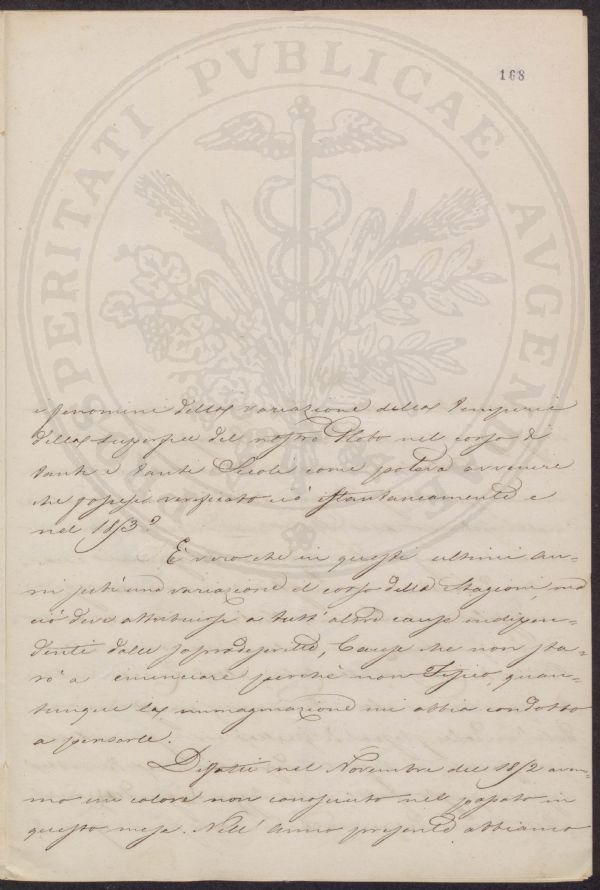 168
PROSPERITATI PVBLICAE AVGENDAE
i fenomeni della variazione della temperie
della superfice del nostro Globo nel corso di
tanti e tanti Secoli come poteva avvenire
che fossesi verificato ciò istantaneamente e
nel 1853?
È vero che in questi ultimi an-
ni patì una variazione il corso delle Stagioni, ma
ciò deve attribuirsi a tutt'altre cause indipen-
denti dalle sopradescritte, Cause che non sta-
rò a enunciare perchè non Fisico, quan-
tunque la immaginazione mi abbia condotto
a pensarle.
Difatti nel Novembre del 1852 avem-
mo un calore non conosciuto nel passato in
questo mese. Nell'anno presente abbiamo